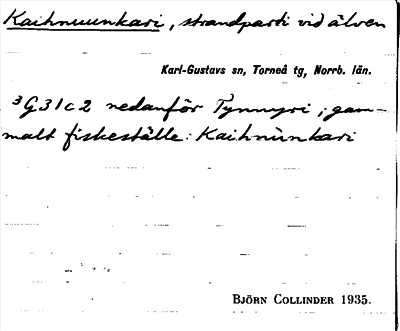 Kaihnuunkari, strandparti vid älven
Karl-Gustavs sn, Torneå tg, Norrb. län.
³G31c2 nedanför Tynnyri; gam-
malt fiskeställe: Kaihnùnkari
BJÖRN COLLINDER 1935.